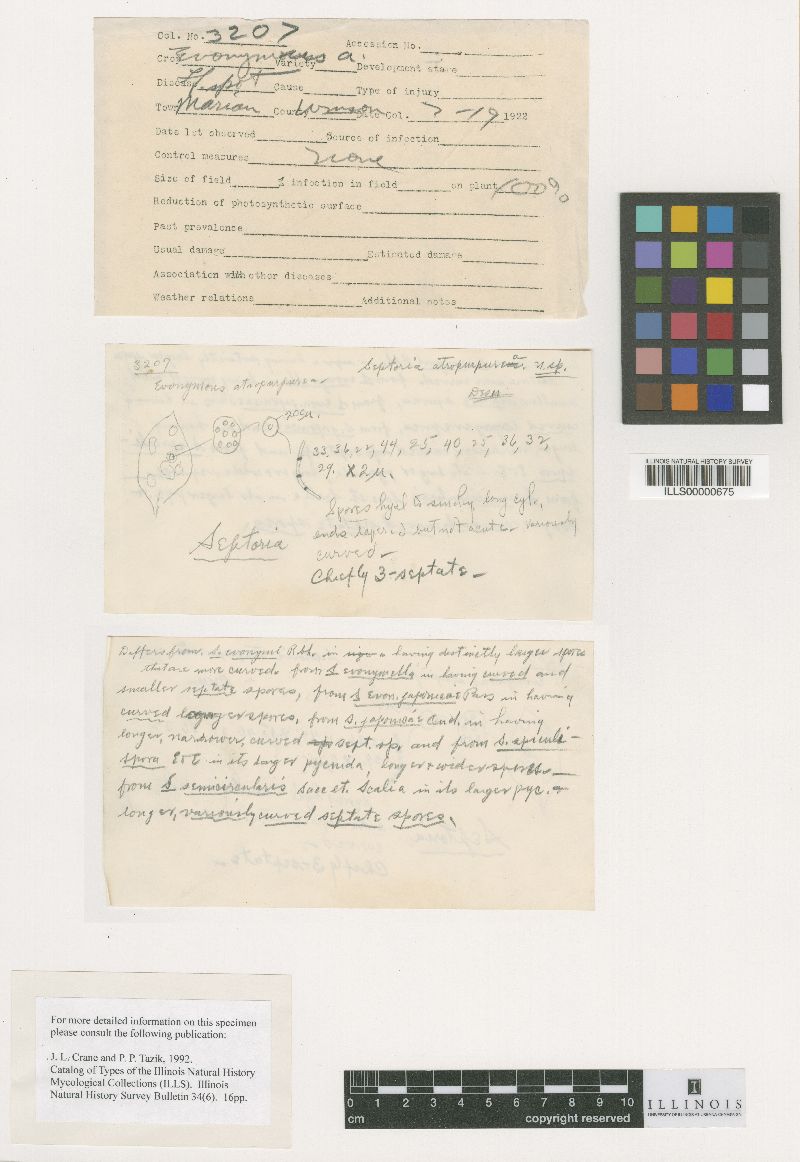 Col. No. 3207 Accession No.
Crop Evonymous a. Variety Development stage
Disease spot Cause Type of injury
Town Marion County Date Col. 7-19 1922
Date 1st observed Source of infection
Control measures none
Size of field % infection in field on plant 100%
Reduction of photosynthetic surface
Past prevalence
Usual damage Estimated damage
Association with other diseases
Weather relations Additional notes
3207 Septoria atropurpurea n. sp.
Evonymous atropurpurea
205µ.
33, 36, 22, 44, 25, 40, 25, 36, 32,
29. x 2µ.
Spores hyal to smoky long cyl.
ends tapered but not acute variously
curved
Septoria
Chiefly 3-septate
Differs from S. evonymi Rbh. in having distinctly larger spores
that are more curved. from S evonymella in having curved and
smaller septate spores, from S Evon. japonicae Pass in having
curved longer spores, from S. japonicae in having
longer, narrower, curved sept. sp. and from S. apiculi-
spora in its larger pycnida, longer & wider spores
from S semicircularis Sacc et. Scalia in its larger pyc. &
longer, variously curved septate spores.
ILLINOIS NATURAL HISTORY SURVEY
ILLS00000675
For more detailed information on this specimen
please consult the following publication:
J. L. Crane and P. P. Tazik. 1992.
Catalog of Types of the Illinois Natural History
Mycological Collections (ILLS). Illinois
Natural History Survey Bulletin 34(6). 16pp.
0 1 2 3 4 5 6 7 8 9 10
cm copyright reserved
I
ILLINOIS
UNIVERSITY OF ILLINOIS AT URBANA-CHAMPAIGN